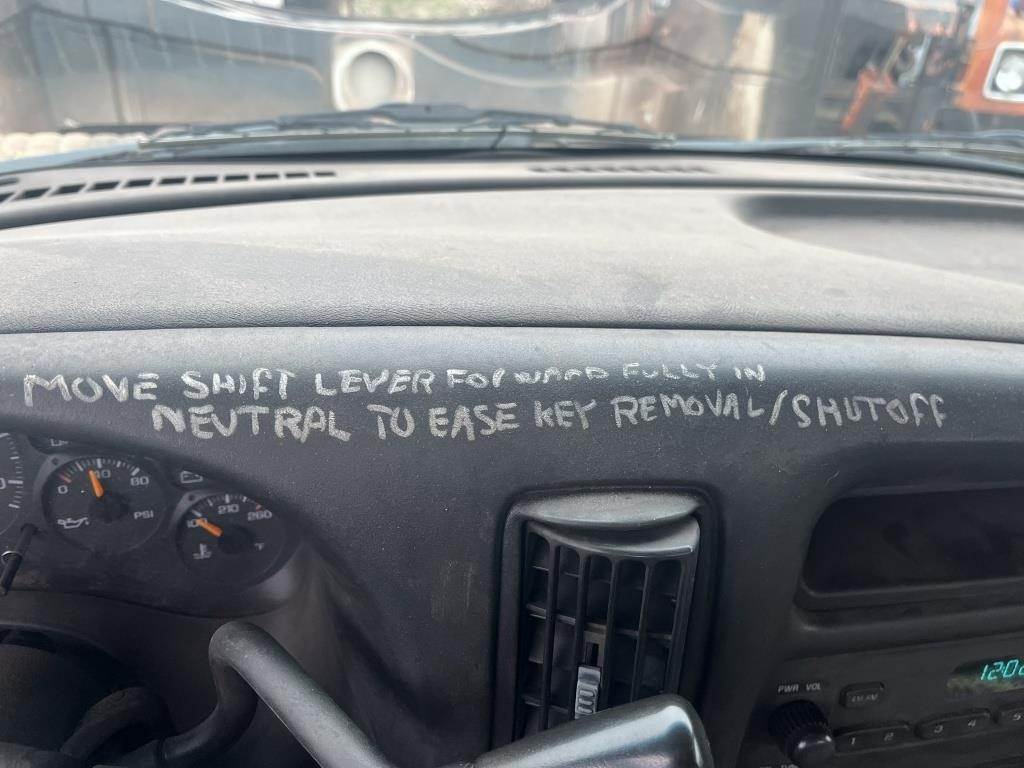 MOVE SHIFT LEVER FORWARD FULLY IN
NEUTRAL TO EASE KEY REMOVAL/SHUTOFF
0 40 80
PSI
100 210 260
°F
PWR VOL
AM FM
1 2 3 4 5